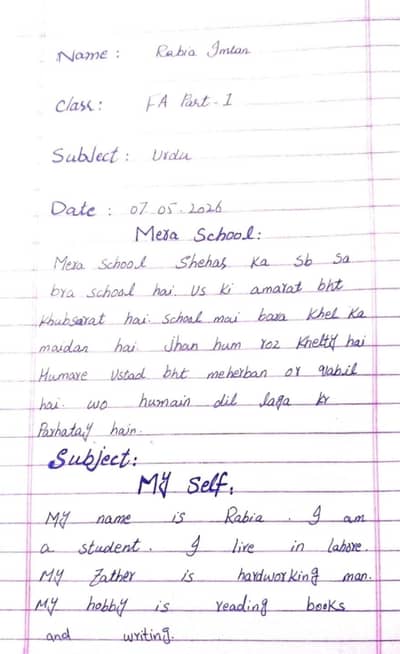 Name : Rabia Imran
Class : FA Part-I
Subject : Urdu
Date : 07.05.2026
Mera School:
Mera School Shehar ka sb sa
bra school hai. Us ki amarat bht
khubsarat hai. School mai bara khel ka
maidan hai. Jhan hum roz khelty hai
Humare Ustad bht meherban or qabil
hai. wo humain dil laga kr
Parhatay hain.
Subject:
My Self:
My name is Rabia. I am
a student. I live in lahore.
My Father is hardworking man.
My hobby is reading books
and writing.